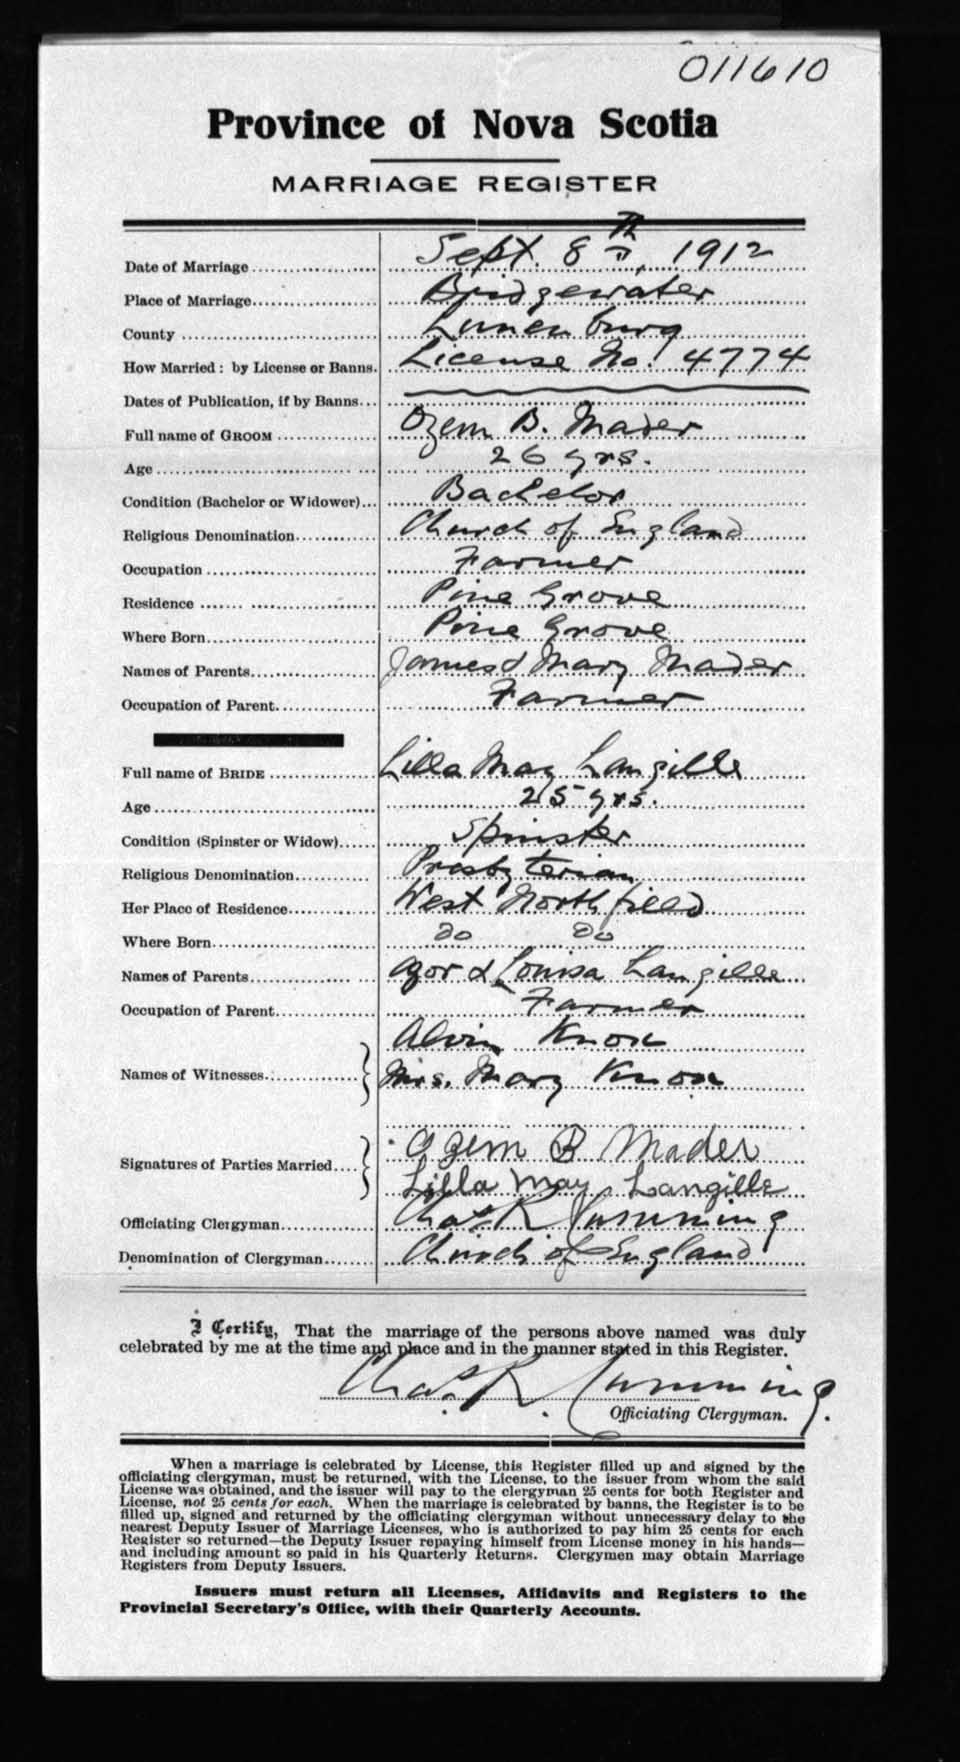 011610
Province of Nova Scotia
MARRIAGE REGISTER
Date of Marriage Sept. 8th, 1912
Place of Marriage Bridgewater
County Lunenburg
How Married: by License or Banns. License No. 4774
Dates of Publication, if by Banns
Full name of GROOM Ozem B. Mader
Age 26 yrs.
Condition (Bachelor or Widower) Bachelor
Religious Denomination Church of England
Occupation Farmer
Residence Pine Grove
Where Born Pine Grove
Names of Parents James & Mary Mader
Occupation of Parent Farmer
Full name of BRIDE Lilla May Langille
Age 25 yrs.
Condition (Spinster or Widow) Spinster
Religious Denomination Presbyterian
Her Place of Residence West Northfield
Where Born do do
Names of Parents Azor & Louisa Langille
Occupation of Parent Farmer
Alvin Knox
Names of Witnesses Mrs. Mary Knox
Ozem B Mader
Signatures of Parties Married
Lilla May Langille
Officiating Clergyman Chas R Cumming
Denomination of Clergyman Church of England
I Certify, That the marriage of the persons above named was duly
celebrated by me at the time and place and in the manner stated in this Register.
Chas. R. Cumming.
Officiating Clergyman.
When a marriage is celebrated by License, this Register filled up and signed by the
officiating clergyman, must be returned, with the License, to the issuer from whom the said
License was obtained, and the issuer will pay to the clergyman 25 cents for both Register and
License, not 25 cents for each. When the marriage is celebrated by banns, the Register is to be
filled up, signed and returned by the officiating clergyman without unnecessary delay to the
nearest Deputy Issuer of Marriage Licenses, who is authorized to pay him 25 cents for each
Register so returned—the Deputy Issuer repaying himself from License money in his hands—
and including amount so paid in his Quarterly Returns. Clergymen may obtain Marriage
Registers from Deputy Issuers.
Issuers must return all Licenses, Affidavits and Registers to the
Provincial Secretary's Office, with their Quarterly Accounts.